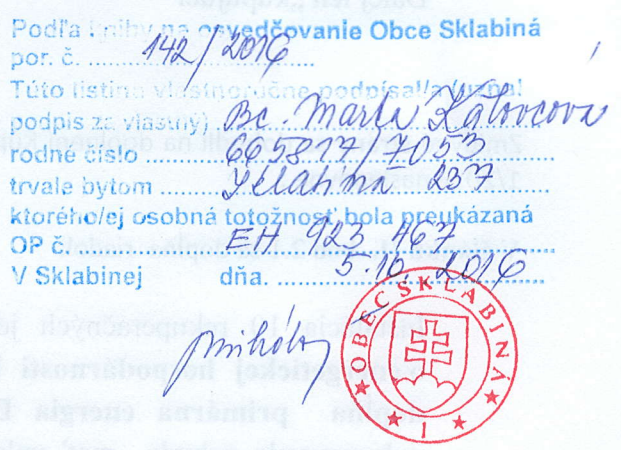 Podľa knihy na osvedčovanie Obce Sklabiná
por. č. 142/2016
Túto listinu vlastnoručne podpísal/a (uznal
podpis za vlastný) Bc. Marta
rodné číslo 665817/7053
trvale bytom 237
ktorého/ej osobná totožnosť bola preukázaná
OP č. EH 923 467
V Sklabinej dňa. 5.10. 2016
OBEC SKLABINÁ
1